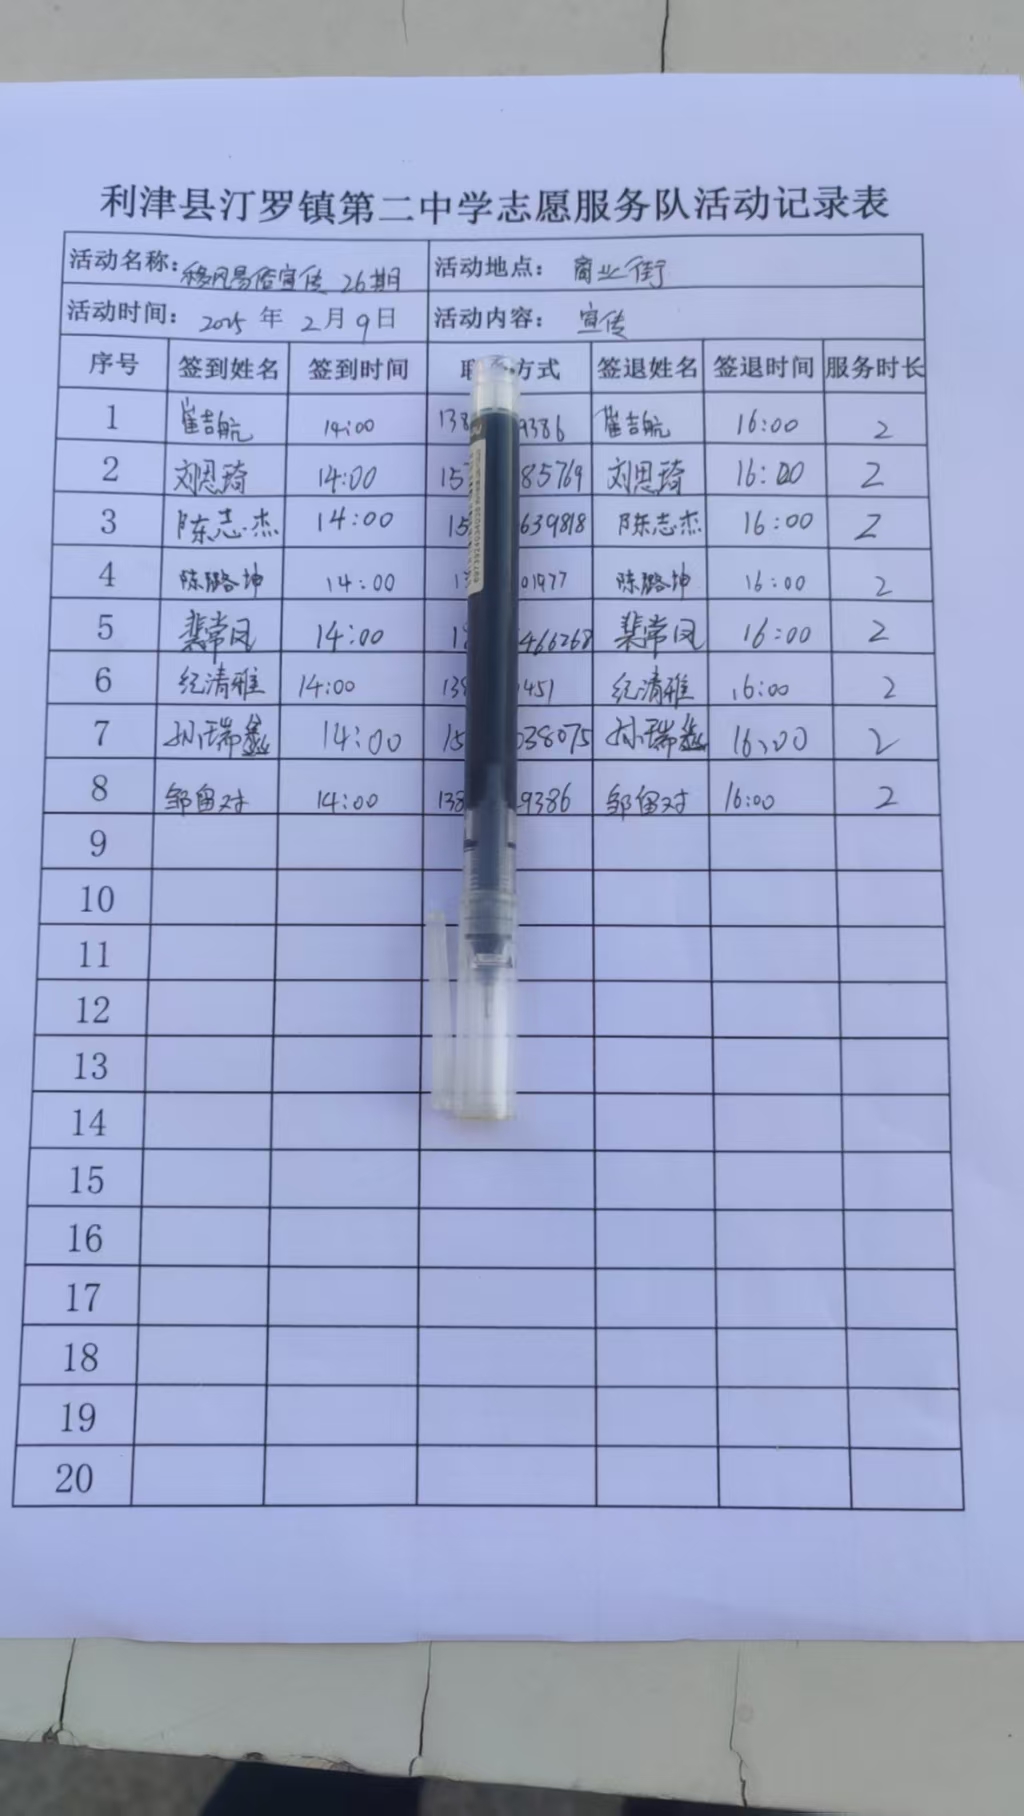 利津县汀罗镇第二中学志愿服务队活动记录表
活动名称：移风易俗宣传 26期 活动地点： 商业街
活动时间： 2025 年 2月 9日 活动内容： 宣传
序号 签到姓名 签到时间 方式 签退姓名 签退时间 服务时长
1 崔吉航 14:00 138 9386 崔吉航 16:00 2
2 刘思琦 14:00 15 85769 刘思琦 16:00 2
3 陈志杰 14:00 15 639818 陈志杰 16:00 2
4 陈璐坤 14:00 1 01977 陈璐坤 16:00 2
5 裴常凤 14:00 1 466268 裴常凤 16:00 2
6 纪清雅 14:00 138 1451 纪清雅 16:00 2
7 孙瑞 14:00 15 038075 孙瑞 16:00 2
8 邹留对 14:00 138 9386 邹留对 16:00 2
9
10
11
12
13
14
15
16
17
18
19
20